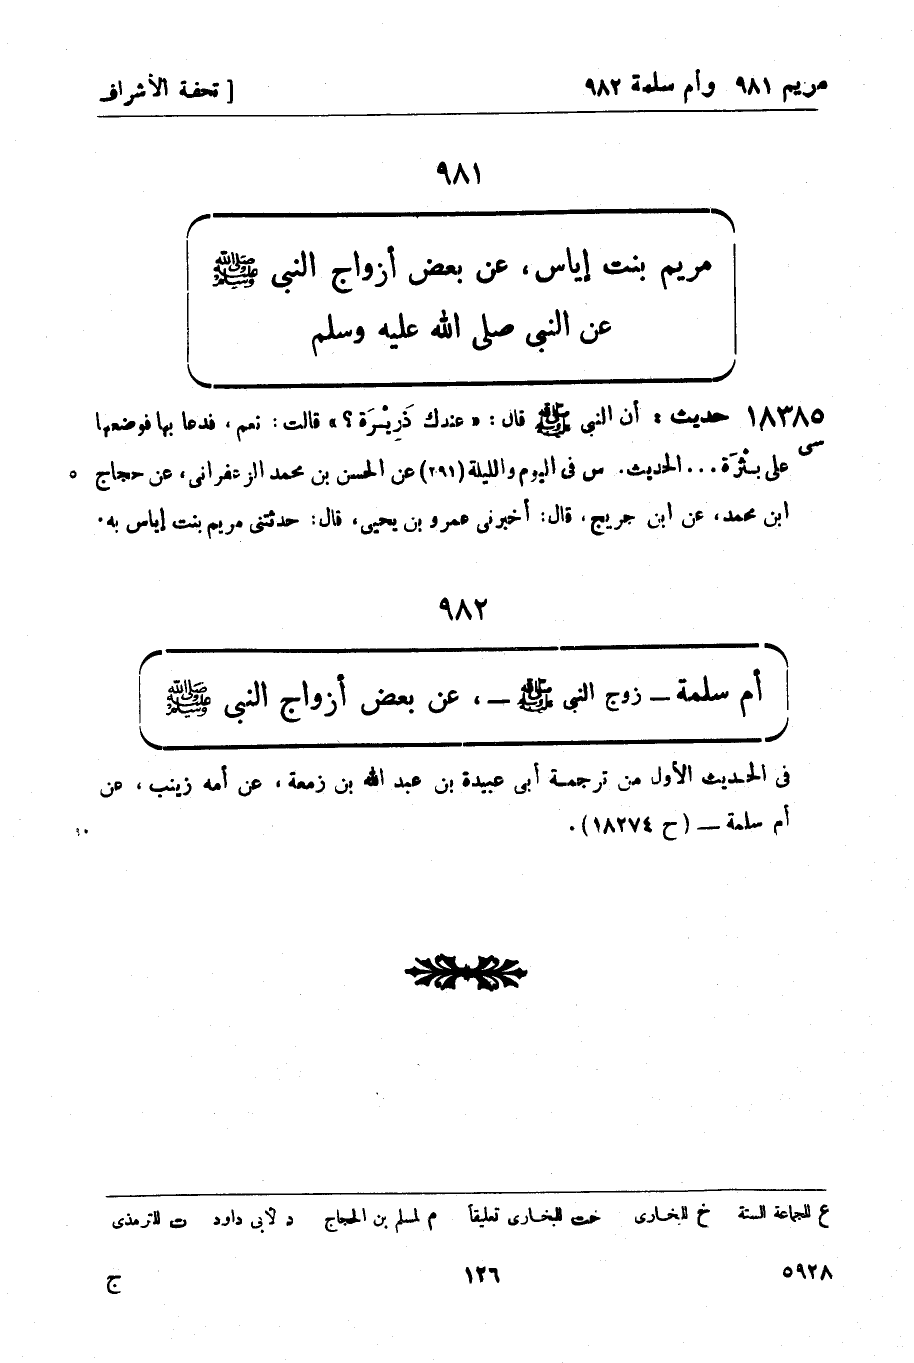 مريم ٩٨١ وأم سلمة ٩٨٢ [ تحفة الأشراف
٩٨١
مريم بنت إياس، عن بعض أزواج النبي ﷺ
عن النبي صلى الله عليه وسلم
١٨٣٨٥ حديث : أن النبي ﷺ قال : « عندك ذَرِيْرَة ؟ » قالت : نعم ، فدعا بها فوضعها
سى على بَثْرَة ... الحديث. س فى اليوم والليلة (٢٩١) عن الحسن بن محمد الزعفرانى، عن حجاج ٥
ابن محمد، عن ابن جريج، قال: أخبرنى عمرو بن يحيى، قال: حدثتنى مريم بنت إياس به.
٩٨٢
أم سلمة ــ زوج النبي ﷺ ــ ، عن بعض أزواج النبي ﷺ
فى الحديث الأول من ترجمـة أبى عبيدة بن عبد الله بن زمعة ، عن أمه زينب ، عن
أم سلمة ــ (ح ١٨٢٧٤). ١٠
ع للجماعة الستة خ للبخـارى خت للبخـارى تعليقاً م لمسلم بن الحجاج د لأبى داود ت للترمذى
٥٩٢٨ ١٢٦ ج